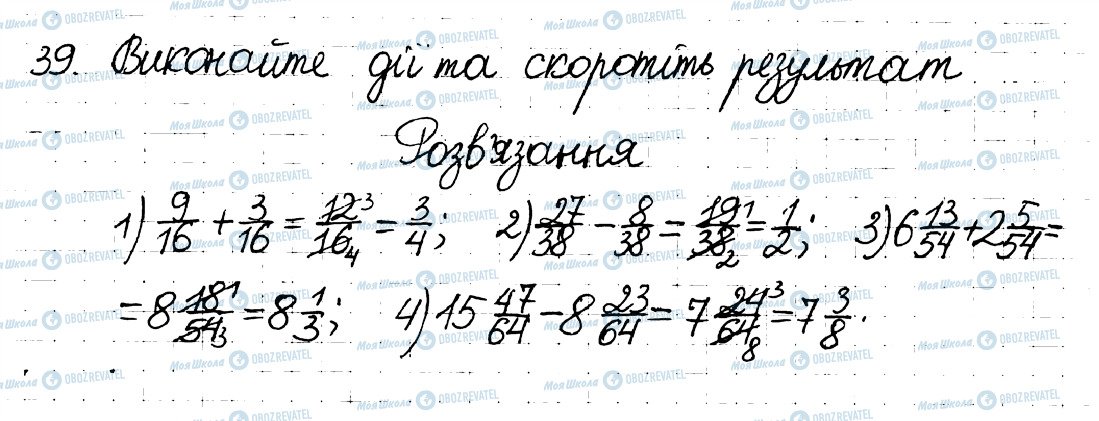 39. Виконайте дії та скоротіть результат
Розв'язання
1) 9/16 + 3/16 = 12³/16₄ = 3/4; 2) 27/38 − 8/38 = 19¹/38₂ = 1/2; 3) 6 13/54 + 2 5/54 =
= 8 18¹/54₃ = 8 1/3; 4) 15 47/64 − 8 23/64 = 7 24³/64₈ = 7 3/8.